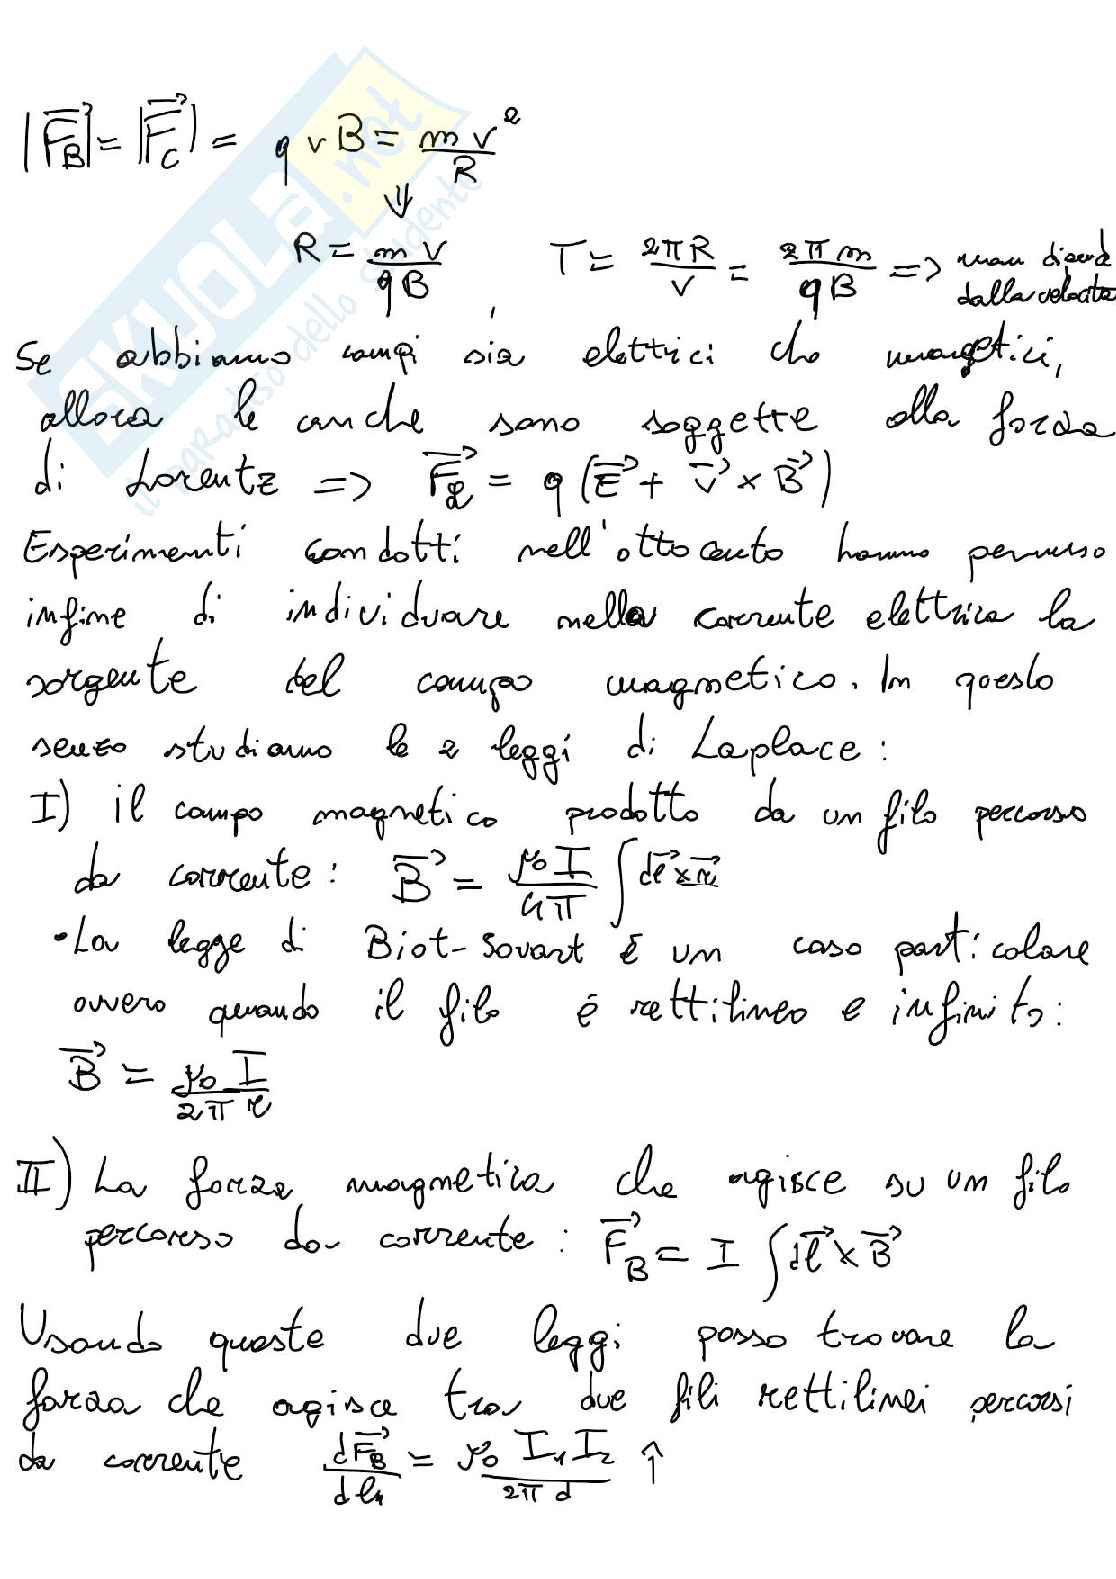 SKUOLA.net
il paradiso dello studente
|F⃗_B| = |F⃗_C| = q v B = m v² / R
⇓
R = m v / q B , T = 2πR / v = 2π m / q B => non dipende
dalla velocità
Se abbiamo campi sia elettrici che magnetici,
allora le cariche sono soggette alla forza
di Lorentz => F⃗_L = q (E⃗ + v⃗ × B⃗)
Esperimenti condotti nell'ottocento hanno permesso
infine di individuare nella corrente elettrica la
sorgente del campo magnetico. In questo
senso studiamo le 2 leggi di Laplace :
I) il campo magnetico prodotto da un filo percorso
da corrente : B⃗ = μ₀ I / 4π ∫ dl⃗ × r⃗
• La legge di Biot-Savart è un caso particolare
ovvero quando il filo è rettilineo e infinito :
B⃗ = μ₀ I / 2π r
II) La forza magnetica che agisce su un filo
percorso da corrente : F⃗_B = I ∫ dl⃗ × B⃗
Usando queste due leggi posso trovare la
forza che agisce tra due fili rettilinei percorsi
da corrente dF⃗_B / dl₁ = μ₀ I₁ I₂ / 2π d ↑